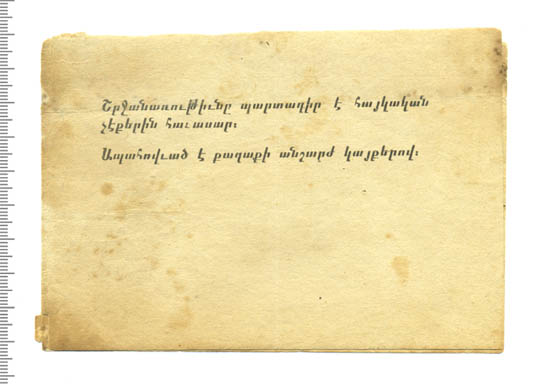 Շրջանառութիւնը պարտադիր է հայկական
չէքերին հաւասար։
Ապահովւած է քաղաքի անշարժ կայքերով։